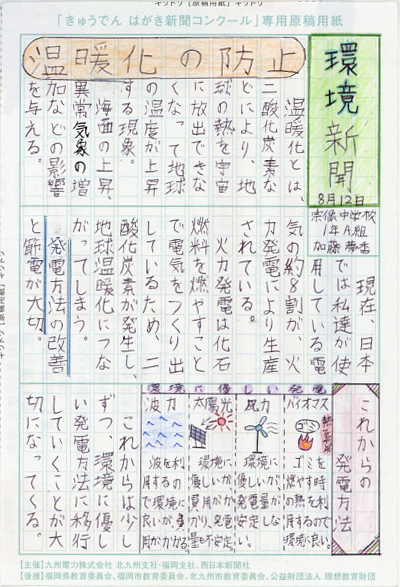 キリトリ【原稿用紙】キリトリ
「きゅうでん はがき新聞コンクール」専用原稿用紙
環境新聞
8月12日
宗像中学校
1年A組
加藤夢杏
温暖化の防止
温暖化とは、
二酸化炭素な
どにより、地
球の熱を宇宙
に放出できな
くなって地球
の温度が上昇
する現象。
海面の上昇、
異常気象の増
加などの影響
を与える。
現在、日本
では私達が使
用している電
気の約8割が、火
力発電により生産
されている。
火力発電は化石
燃料を燃やすこと
で電気をつくり出
しているため、二
酸化炭素が発生し、
地球温暖化につな
がってしまう。
発電方法の改善
と節電が大切。
これからの
発電方法
環境に優しい発電
バイオマス
ゴミを
燃やす
風力
環境に
優しいが
発電量が
安定しない
太陽光
環境に
波力
波を利
用する
ので環
境に良
いが費
用がか
かる。
これからは少し
ずつ、環境に優し
い発電方法に移行
していくことが大
切になってくる。
【主催】九州電力株式会社 北九州支社・福岡支社、西日本新聞社
【後援】福岡県教育委員会、福岡市教育委員会、北九州市教育委員会、公益財団法人 理想教育財団